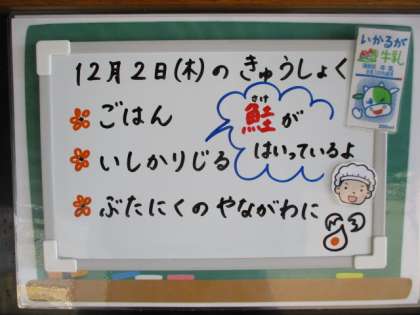 12月2日(木)のきゅうしょく
ごはん
いしかりじる
ぶたにくのやながわに
さけ
鮭が
はいっているよ
いかるが
牛乳